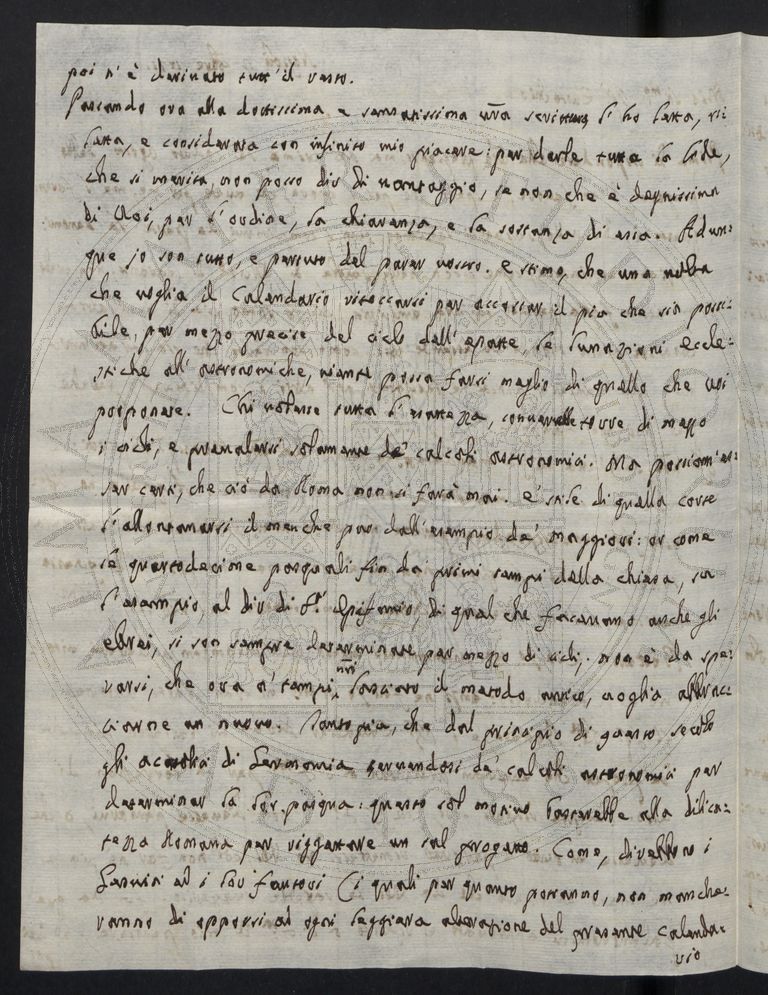 poi n'è derivato tutt'il resto.
Passando ora alla dottissima e sensatissima vr̃a scrittura, l'ho letta, ri:
letta, e considerata con infinito mio piacere: per darle tutta la lode,
che si merita, non posso dir di vantaggio, se non che è degnissima
di Voi, per l'ordine, la chiarezza, e la sostanza di essa. Adun:
que io son tutto, e per tutto del parer vostro. e stimo, che una volta
che voglia il Calendario ritoccarsi per accostar il più che sia possi:
bile, per mezzo precise del ciclo dell'epatte, le lunazioni eccle:
stiche all'astronomiche, niente possa farsi meglio di quello che voi
proponete. Chi volesse tutta l'esattezza, converrebbe torre di mezzo
i cicli, e prevalersi solamente de' calcoli astronomici. Ma possiam es:
ser certi, che ciò da Roma non si farà mai. è stile di quella corte
l'allontanarsi il menche può dall'esempio de' maggiori: or come
le quartodecime pasquali fin da' primi tempi della chiesa, su
l'esempio, al dir di S. Epifanio, di quel che facevano anche gli
ebrei, si son sempre determinate per mezzo di cicli; non è da spe:
rarsi, che ora a' tempi nr̃i, lasciato il metodo antico, voglia abbrac:
ciarne un nuovo. Tanto più, che dal principio di questo secolo
gli acattolici di Germania servendosi de' calcoli astronomici per
determinar la lor pasqua: questo sol motivo basterebbe alla dilica:
tezza Romana per riggettare un tal progetto. Come, direbbono i
Gesuiti ed i lor fautori (i quali per quanto potranno, non manche:
ranno di opporsi ad ogni leggiera alterazione del presente calenda:
rio